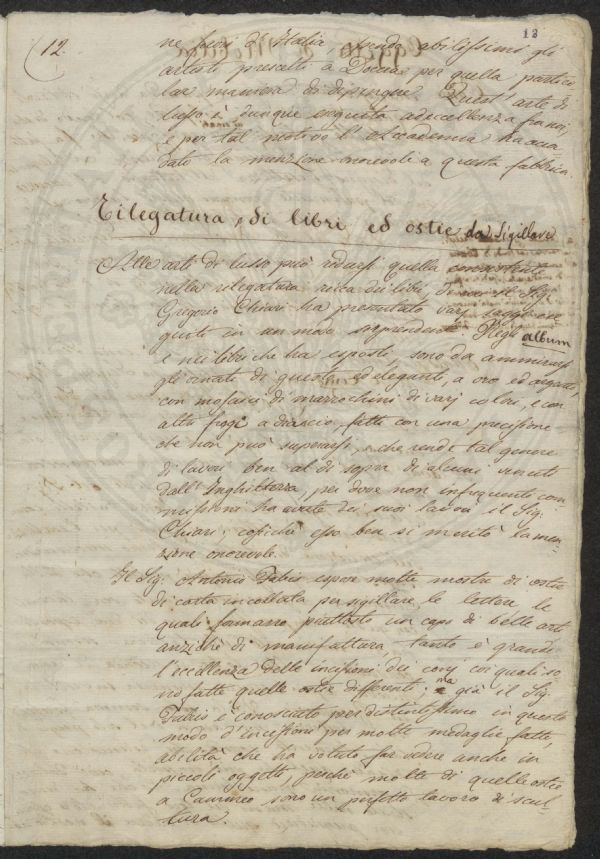 12.
13
ne fuori d'Italia, essendo abilissimi gli
artisti prescelti a Doccia per quella partico
lar maniera di dipingere. Quest'arte di
lusso è dunque eseguita ad eccellenza fra noi,
e per tal motivo l'Accademia ha accor
dato la menzione onorevole a questa fabbrica.
Rilegatura di libri ed ostie da Sigillare
Alle arti di lusso può ridursi quella consistente
nella rilegatura ricca dei libri. Di essa il Sig.
Gregorio Chiari ha presentato varj saggi ese
guiti in un modo sorprendente. Negli album
e nei libri che ha esposti, sono da ammirarsi
gli ornati di questi ed eleganti, a oro ed argento,
con mosaici di marrocchini di varj colori, e con
altri fregi a diaccio, fatti con una precisione
che non può superarsi, e che rende tal genere
di lavori ben al di sopra di alcuni venuti
dall'Inghilterra, per dove non infrequenti com=
missioni ha avute dei suoi lavori il Sig.
Chiari; cosichè esso ben si meritò la men=
zione onorevole.
Il Sig. Antonio Fabris espose molte mostre di ostie
di carta incollata per sigillare le lettere, le
quali formano piuttosto un capo di belle arti
anzichè di manifattura, tanto è grande
l'eccellenza delle incisioni dei conj coi quali so
no fatte quelle ostie differenti; ma già il Sig.
Fabris è conosciuto per distintissimo in questo
modo d'incisioni per molte medaglie fatte,
abilità che ha voluto far vedere anche in
piccoli oggetti, perchè molte di quelle ostie
a Cammeo sono un perfetto lavoro di scul=
tura.